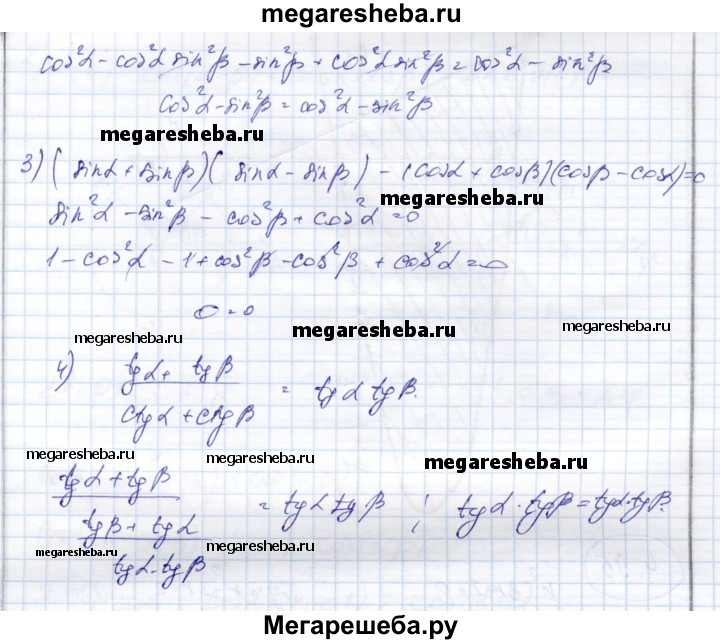 megaresheba.ru
cos²α - cos²α sin²β - sin²β + cos²α sin²β = cos²α - sin²β
cos²α - sin²β = cos²α - sin²β
megaresheba.ru
3) (sinα + sinβ)(sinα - sinβ) - (cosα + cosβ)(cosβ - cosα) = 0
megaresheba.ru
sin²α - sin²β - cos²β + cos²α = 0
1 - cos²α - 1 + cos²β - cos²β + cos²α = 0
0 = 0
megaresheba.ru megaresheba.ru megaresheba.ru
4) (tgα + tgβ) / (ctgα + ctgβ) = tgα tgβ.
megaresheba.ru megaresheba.ru
(tgα + tgβ) / ((tgβ + tgα) / (tgα·tgβ)) = tgα tgβ ; tgα · tgβ = tgα·tgβ.
megaresheba.ru megaresheba.ru megaresheba.ru
Мегарешеба.ру